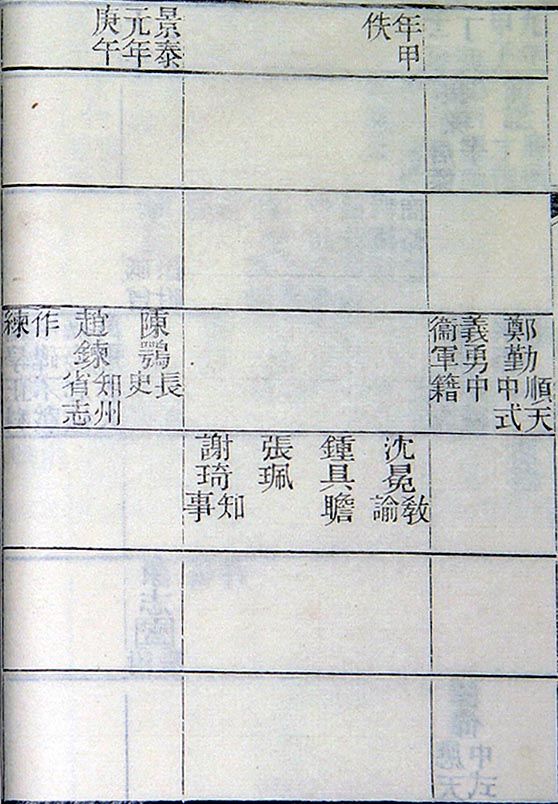 年甲
佚
景泰
元年
庚午
鄭勤順天中式
義勇中
衞軍籍
陳鶚長史
趙鍊知州省志
作練
沈冕教諭
鍾具瞻
張珮
謝琦知事